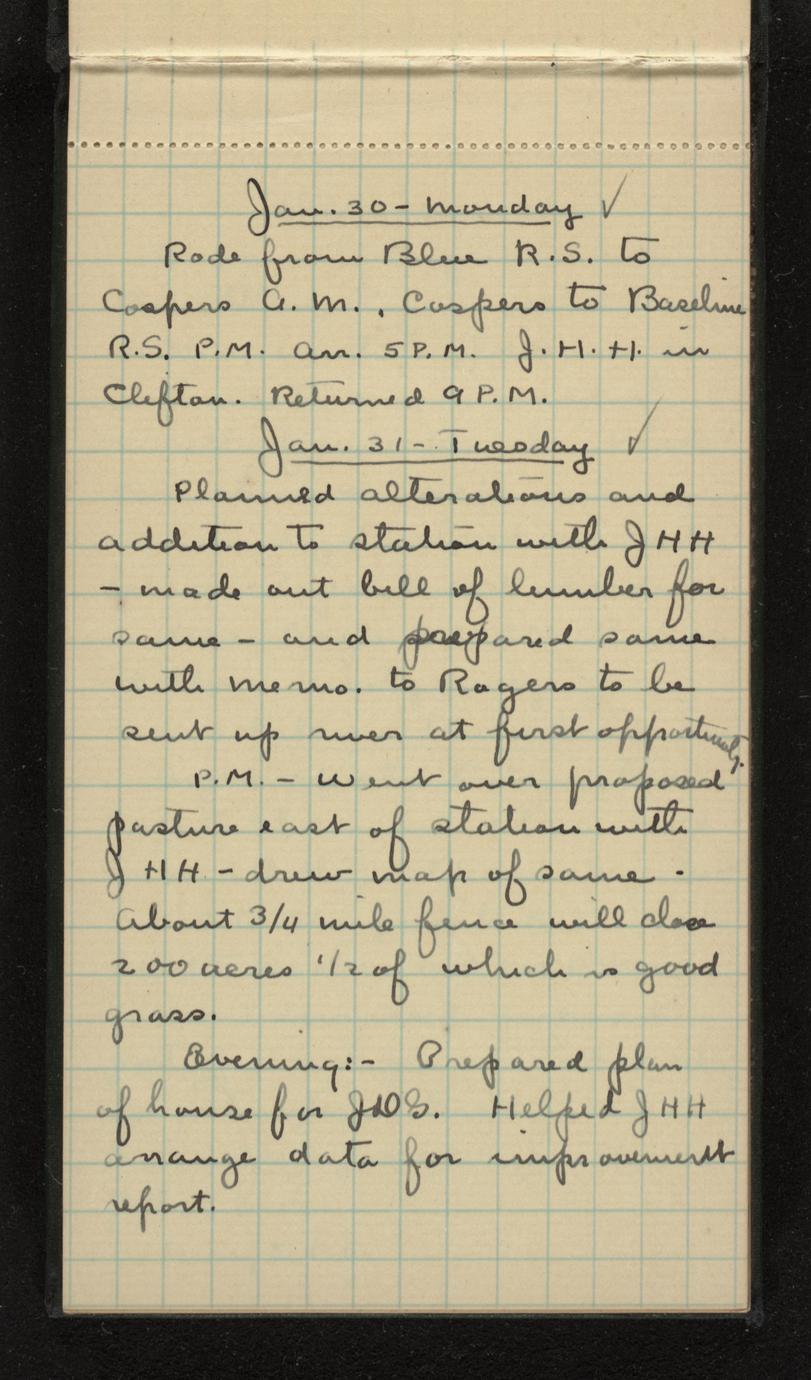 Jan. 30 - Monday ✓
Rode from Blue R.S. to
Cospers A.M., Cospers to Baseline
R.S. P.M. Arr. 5 P.M. J.H.H. in
Clifton. Returned 9 P.M.
Jan. 31 - Tuesday ✓
Planned alterations and
addition to station with JHH
- made out bill of lumber for
same - and prepared same
with memo. to Rogers to be
sent up river at first opportunity.
P.M. - Went over proposed
pasture east of station with
JHH - drew map of same -
About 3/4 mile fence will close
200 acres 1/2 of which is good
grass.
Evening:- Prepared plan
of house for JDG. Helped JHH
arrange data for improvement
report.